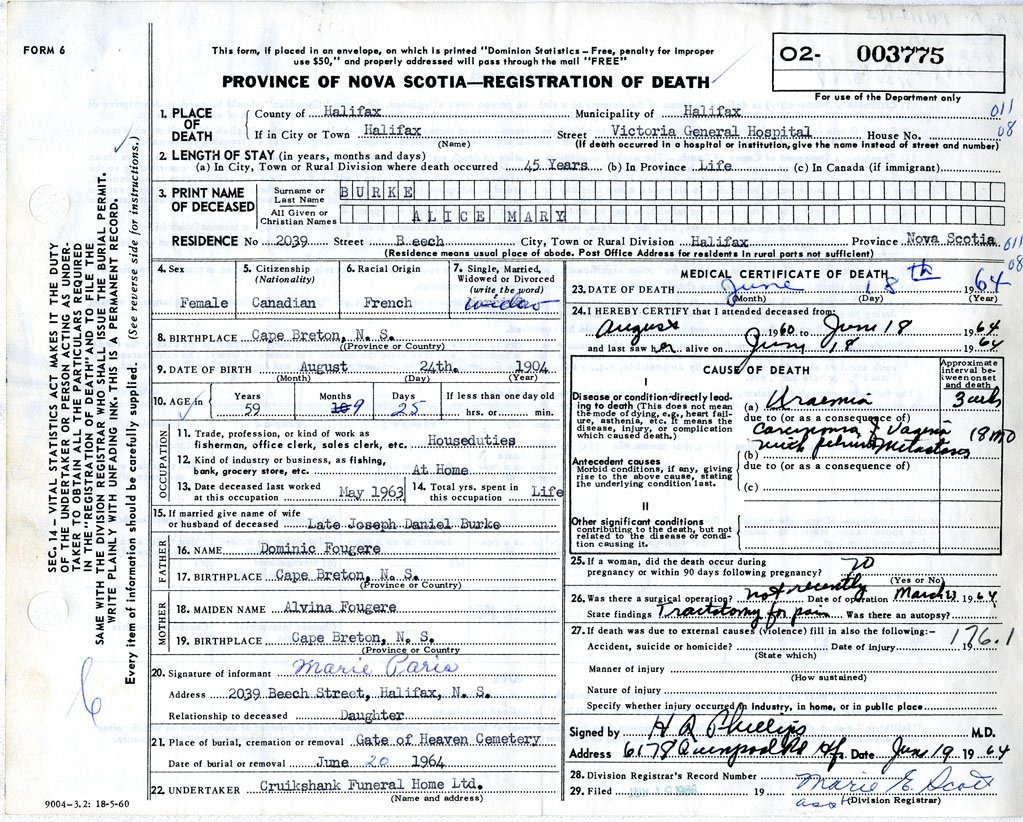 FORM 6
This form, if placed in an envelope, on which is printed "Dominion Statistics – Free, penalty for improper
use $50," and properly addressed will pass through the mail "FREE"
PROVINCE OF NOVA SCOTIA—REGISTRATION OF DEATH
02- 003775
For use of the Department only
SEC. 14 - VITAL STATISTICS ACT MAKES IT THE DUTY
OF THE UNDERTAKER OR PERSON ACTING AS UNDER-
TAKER TO OBTAIN ALL THE PARTICULARS REQUIRED
IN THE "REGISTRATION OF DEATH" AND TO FILE THE
SAME WITH THE DIVISION REGISTRAR WHO SHALL ISSUE THE BURIAL PERMIT.
WRITE PLAINLY WITH UNFADING INK. THIS IS A PERMANENT RECORD.
Every item of information should be carefully supplied. (See reverse side for instructions.)
6
1. PLACE OF DEATH
County of Halifax Municipality of Halifax 011
If in City or Town Halifax Street Victoria General Hospital House No. 08
(Name) (If death occurred in a hospital or institution, give the name instead of street and number)
2. LENGTH OF STAY (in years, months and days)
(a) In City, Town or Rural Division where death occurred 45 Years (b) In Province Life (c) In Canada (if immigrant)
3. PRINT NAME OF DECEASED
Surname or Last Name BURKE
All Given or Christian Names ALICE MARY
RESIDENCE No 2039 Street Beech City, Town or Rural Division Halifax Province Nova Scotia 011
08
(Residence means usual place of abode. Post Office Address for residents in rural parts not sufficient)
4. Sex
Female
5. Citizenship
(Nationality)
Canadian
6. Racial Origin
French
7. Single, Married,
Widowed or Divorced
(write the word)
widow
8. BIRTHPLACE Cape Breton, N. S.
(Province or Country)
9. DATE OF BIRTH August 24th. 1904
(Month) (Day) (Year)
10. AGE in Years 59 Months 9 Days 25 If less than one day old hrs. or min.
OCCUPATION
11. Trade, profession, or kind of work as
fisherman, office clerk, sales clerk, etc. Houseduties
12. Kind of industry or business, as fishing,
bank, grocery store, etc. At Home
13. Date deceased last worked
at this occupation May 1963
14. Total yrs. spent in
this occupation Life
15. If married give name of wife
or husband of deceased Late Joseph Daniel Burke
FATHER
16. NAME Dominic Fougere
17. BIRTHPLACE Cape Breton, N. S.
(Province or Country)
MOTHER
18. MAIDEN NAME Alvina Fougere
19. BIRTHPLACE Cape Breton, N. S.
(Province or Country
20. Signature of informant Marie Paris
Address 2039 Beech Street, Halifax, N. S.
Relationship to deceased Daughter
21. Place of burial, cremation or removal Gate of Heaven Cemetery
Date of burial or removal June 20 1964
22. UNDERTAKER Cruikshank Funeral Home Ltd.
(Name and address)
9004-3.2: 18-5-60
MEDICAL CERTIFICATE OF DEATH
23. DATE OF DEATH June 18th 1964
(Month) (Day) (Year)
24. I HEREBY CERTIFY that I attended deceased from:
August 1960 to June 18 1964
and last saw her alive on June 18 1964
CAUSE OF DEATH
Approximate
interval be-
tween onset
and death
I
Disease or condition directly lead-
ing to death (This does not mean
the mode of dying, e.g., heart fail-
ure, asthenia, etc. It means the
disease, injury, or complication
which caused death.)
(a) Uraemia 3 wks
due to (or as a consequence of)
Carcinoma of Vagina 18 mo
(b) with pelvic Metastases
due to (or as a consequence of)
(c)
Antecedent causes
Morbid conditions, if any, giving
rise to the above cause, stating
the underlying condition last.
II
Other significant conditions
contributing to the death, but not
related to the disease or condi-
tion causing it.
25. If a woman, did the death occur during
pregnancy or within 90 days following pregnancy? no
(Yes or No)
26. Was there a surgical operation? not recently Date of operation March 23 1964
State findings Tractotomy for pain Was there an autopsy?
27. If death was due to external causes (violence) fill in also the following:-
176.1
Accident, suicide or homicide? Date of injury 19
(State which)
Manner of injury
(How sustained)
Nature of injury
Specify whether injury occurred in industry, in home, or in public place
Signed by H D Phillips M.D.
Address 6178 Quinpool Rd Hfx Date June 19 1964
28. Division Registrar's Record Number
29. Filed 19 Marie E. Scott
(Division Registrar)